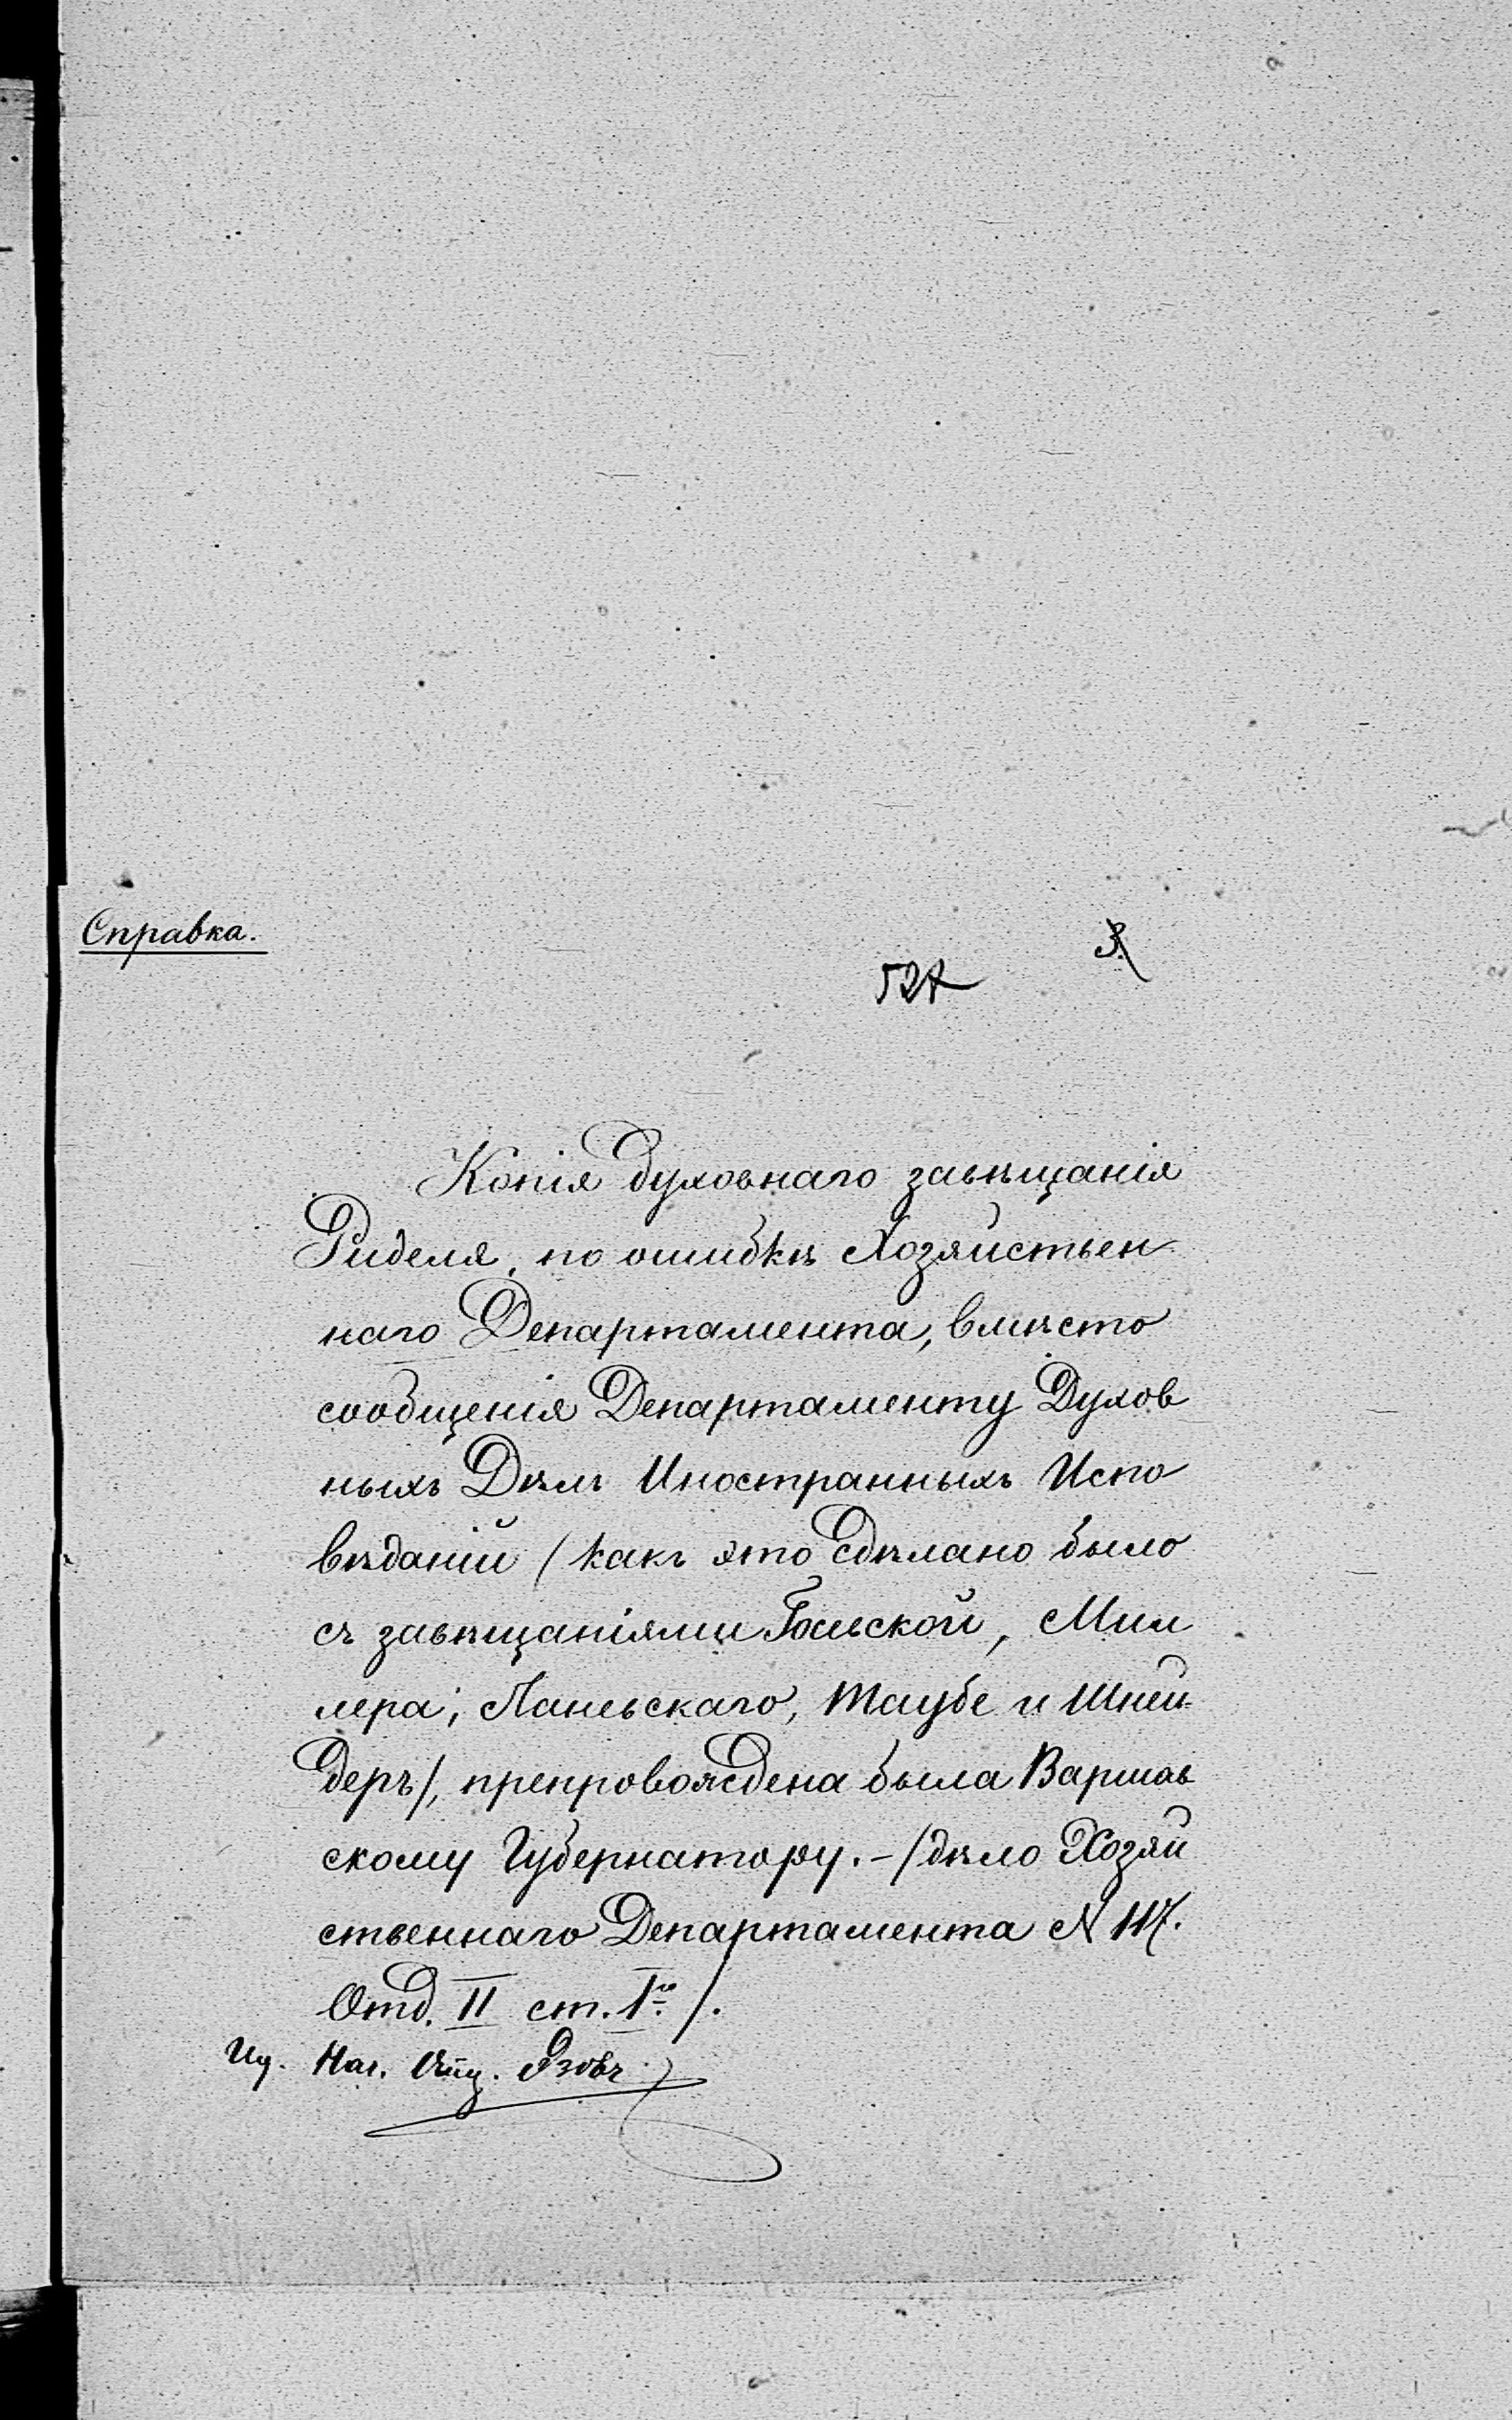 Справка.
527
Копія духовнаго завѣщанія
Риделя, по ошибкѣ Хозяйствен
наго Департамента, вмѣсто
сообщенія Департаменту Духов
ныхъ Дѣлъ Иностранныхъ Испо
вѣданій (какъ это сдѣлано было
съ завѣщаніями Гольской, Мил
лера; Паньскаго, Таубе и Шней
деръ), препровождена была Варшав
скому Губернатору. - (дѣло Хозяй
ственнаго Департамента № 117.
Отд. II ст. 1го).
Нач. Язовъ